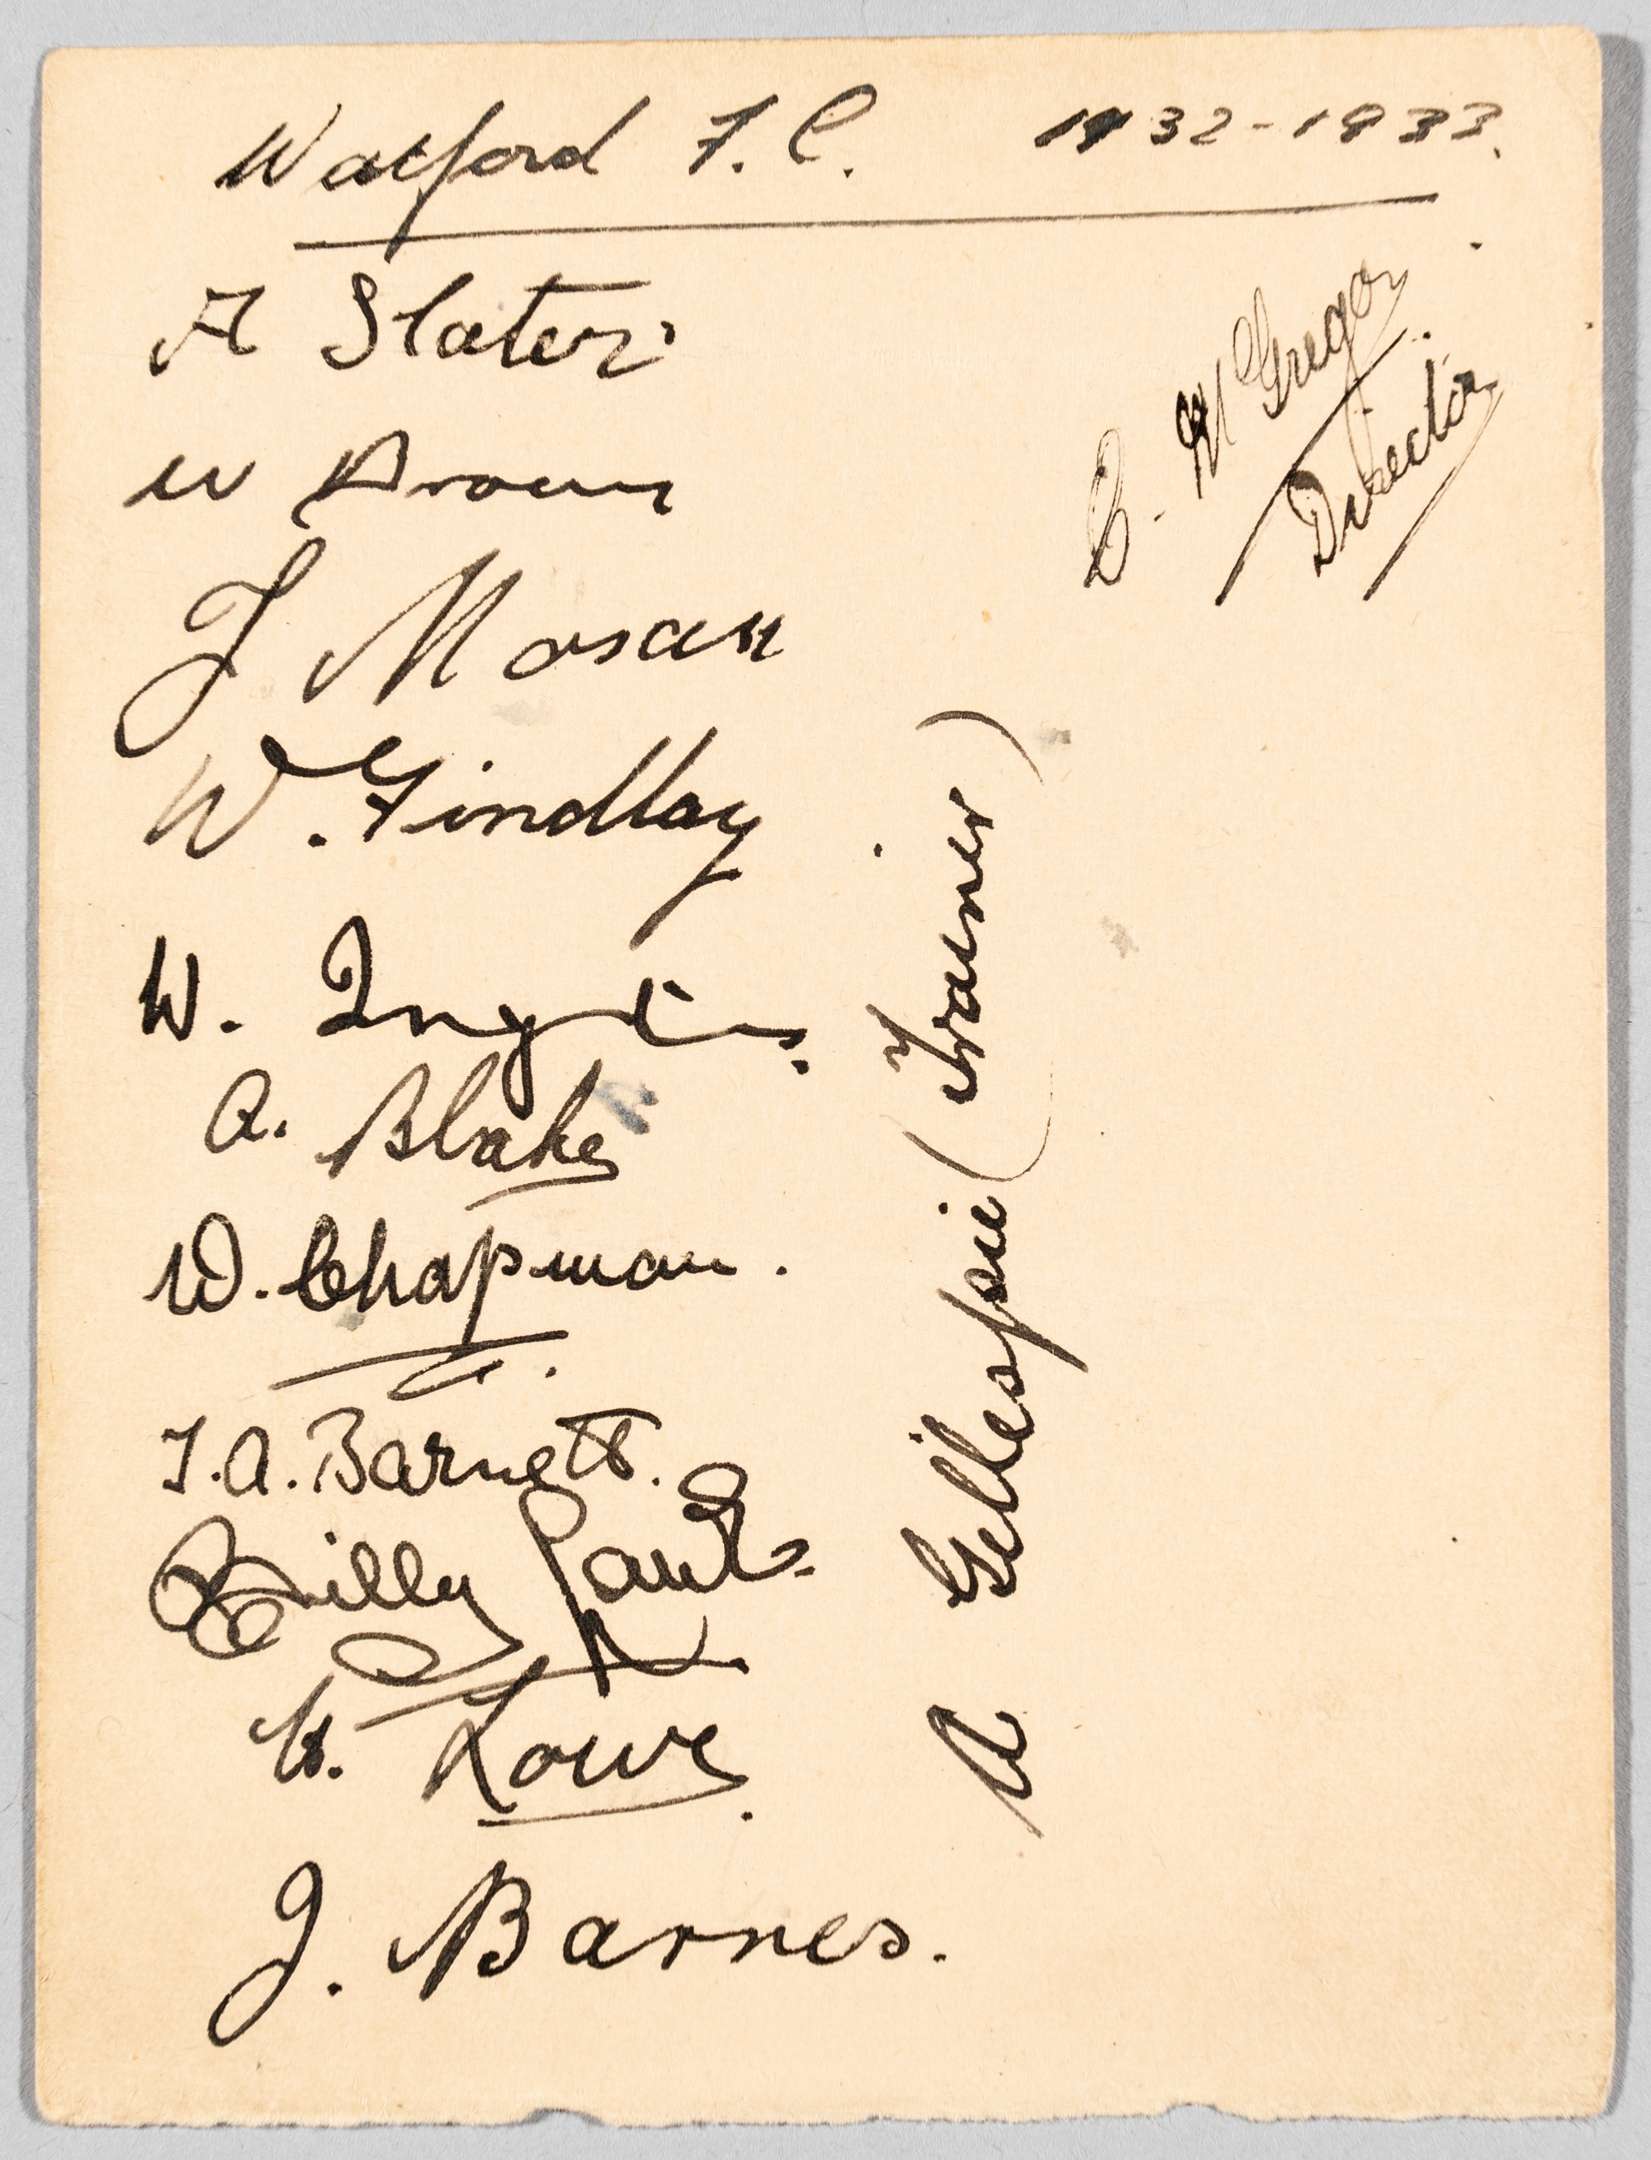 Watford F.C. 1932-1933.
A Slater.
W Brown
J Moran
W. Findlay
W. Inglis.
A. Blake
W. Chapman.
T. A. Barnett.
Billy Lane
H. Lowe.
J. Barnes.
A Gillespie (Trainer)
C. McGregor.
Director